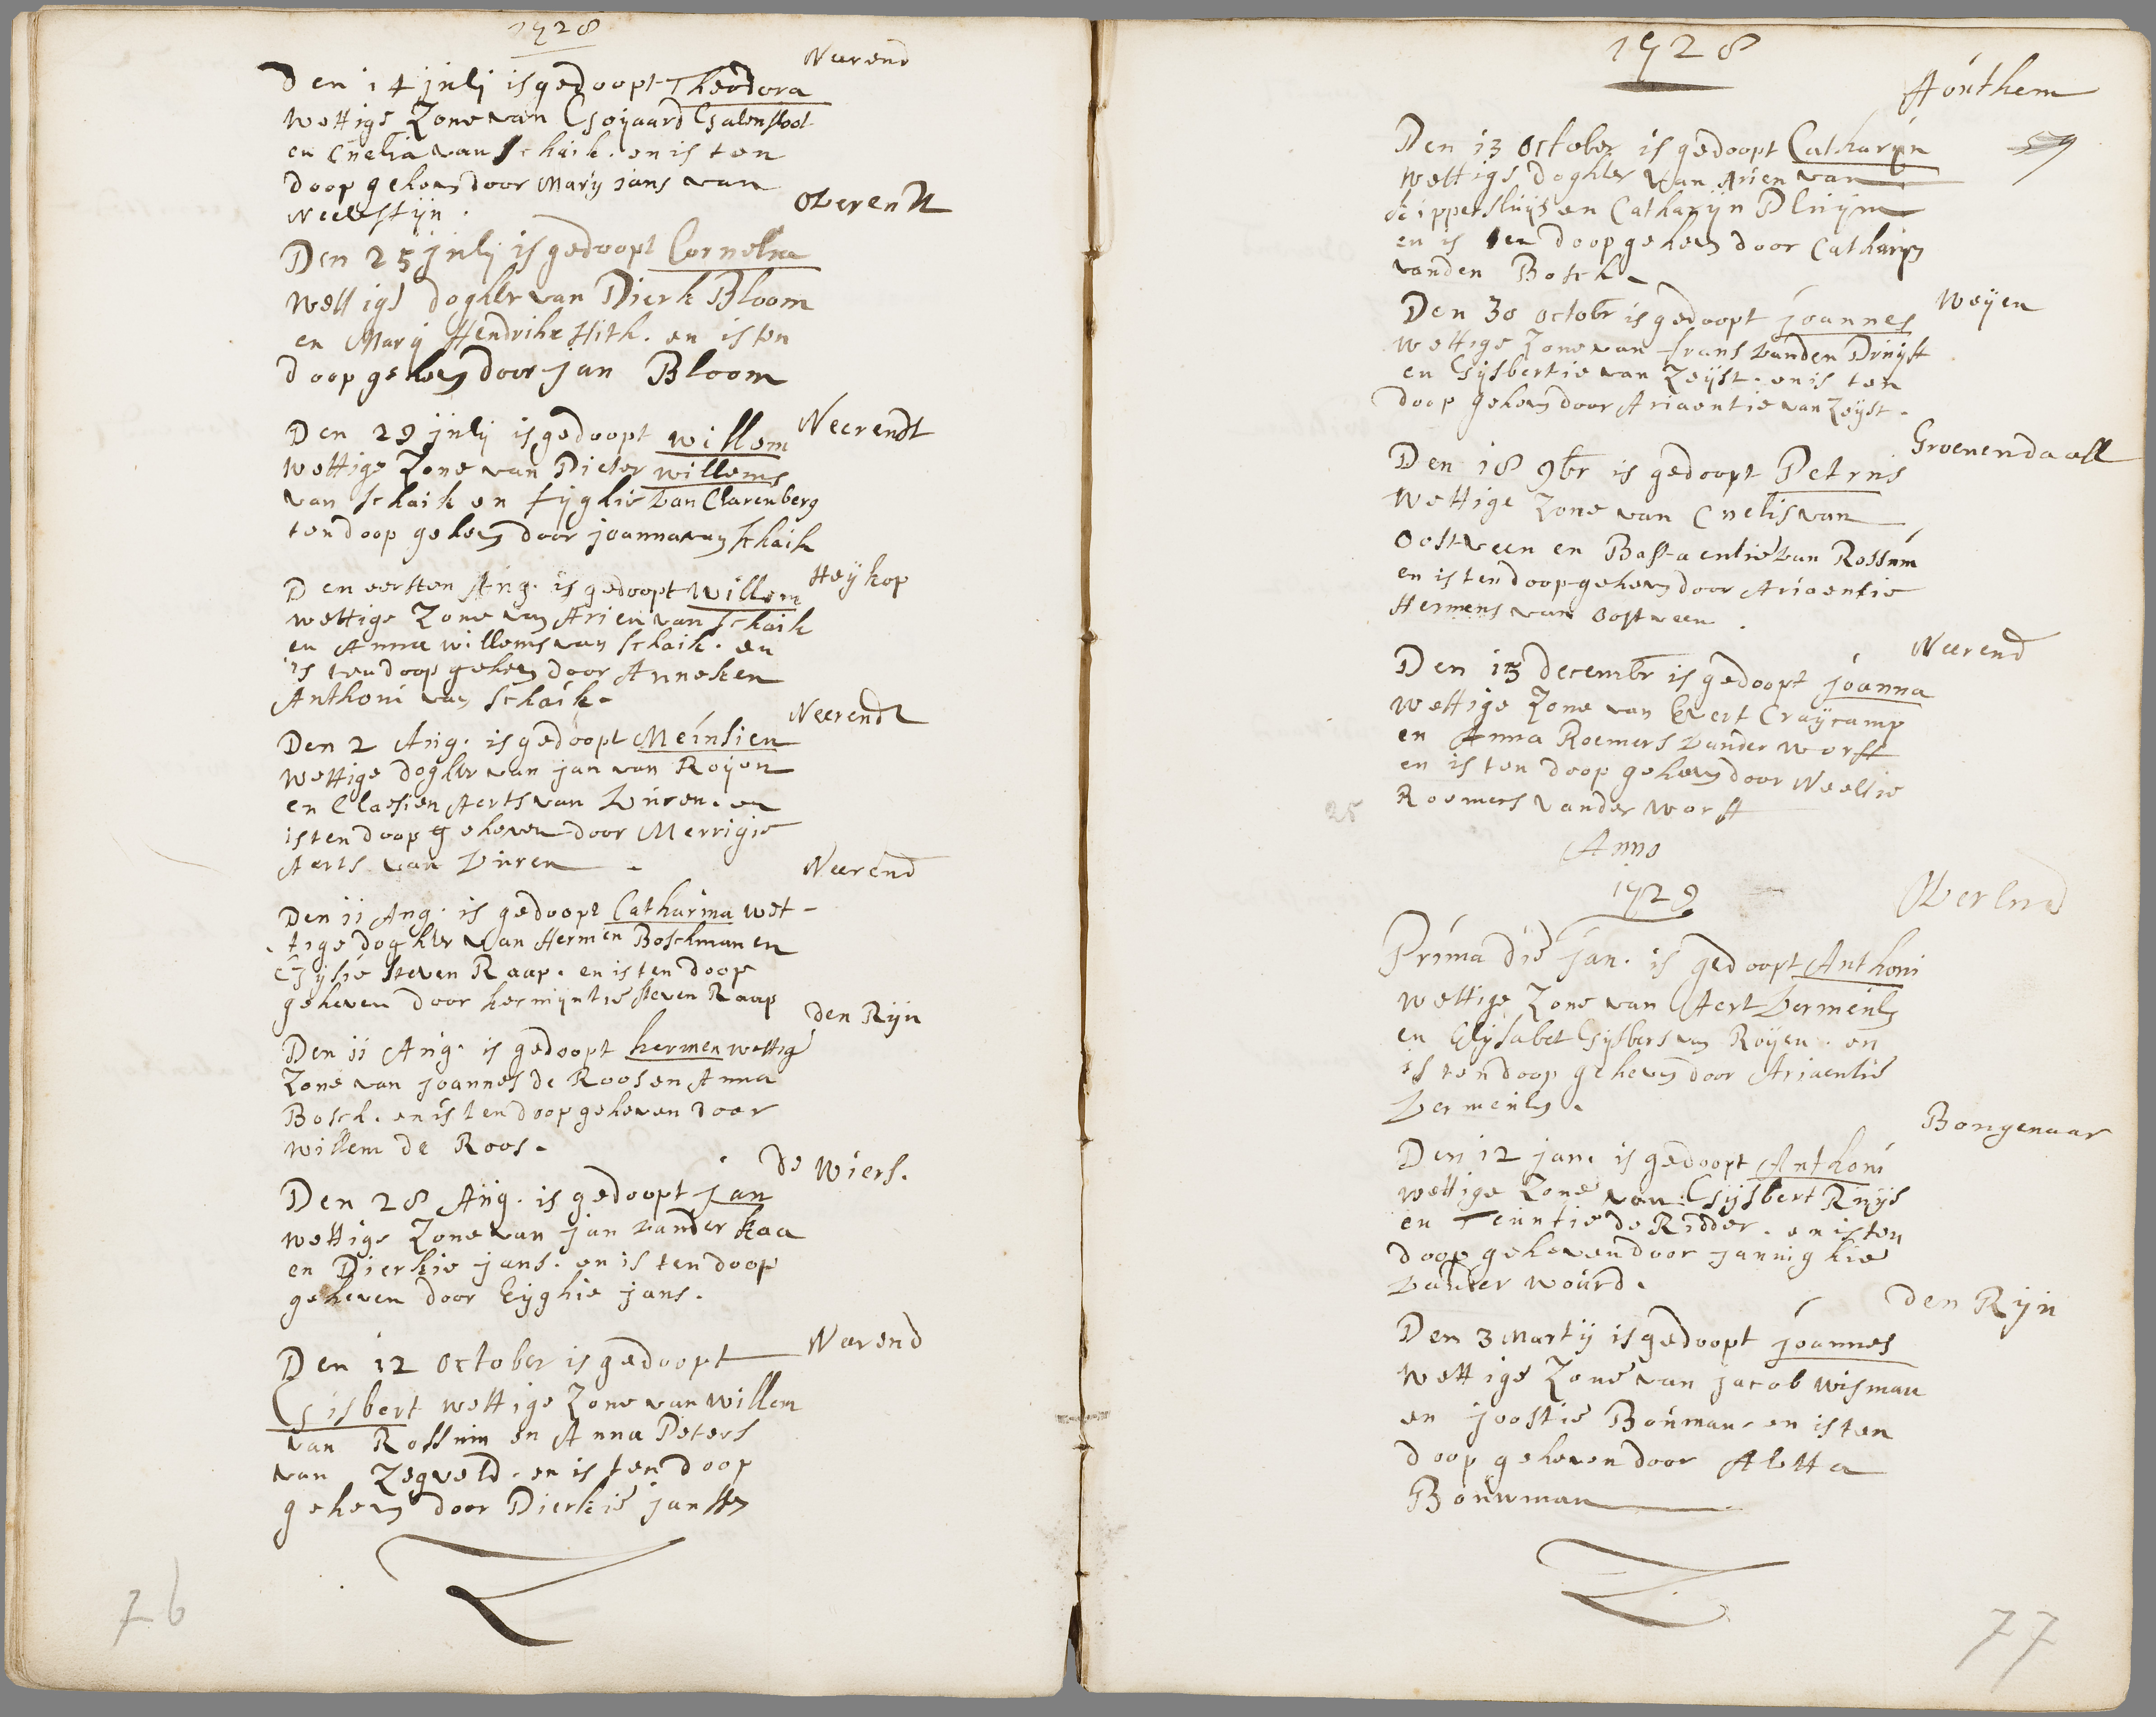 1728
Neerend
Den 14 julij is gedoopt Theodora
wettige Zone van Goijaard Galenstoot
en Cnelia van Schaik. en is ten
doop geheven door Marij jans van
Neelstijn.
Overendt
Den 25 julij is gedoopt Cornelia
wettige doghter van Dierk Bloom
en Marij Hendrikx Hith. en is ten
doop geheven door jan Bloom
Neerendt
Den 29 julij is gedoopt willem
wettige Zone van Pieter willems
van Schaik en Fijghie van Clarenberg
ten doop geheven door joanna van Schaik
Heijkop
Den eersten Aug. is gedoopt Willem
wettige Zone van Arien van Schaik
en Anna willems van Schaik. en
is ten doop geheven door Anneken
Anthoni van Schaik.
Neerendt
Den 2 Aug. is gedoopt Meinsien
wettige doghter van jan van Roijen
en Claesien Aerts van Buren. en
is ten doop geheven door Merrigie
Aerts van Buren.
Neerend
Den 11 Aug. is gedoopt Catharina wet-
tige doghter van Hermen Boschman en
Eijhie steven Raap. en is ten doop
geheven door hermijntie steven Raap
den Rijn
Den 11 Aug. is gedoopt hermen wettig
Zone van joannes de Roos en Anna
Bosch. en is ten doop geheven door
willem de Roos.
de Wiers.
Den 28 Aug. is gedoopt jan
wettige Zone van jan vander kaa
en Dierkie jans. en is ten doop
geheven door Eijghie jans.
Neerend
Den 12 October is gedoopt
Gisbert wettige Zone van willem
van Rossum en Anna Peters
van Zegveld. en is ten doop
geheven door Dierkie janssen
76
1728
Houthem
59
Den 13 October is gedoopt Catharijn
wettige doghter van Arien van
kippersluijs en Catharijn Pluijm
en is ten doop geheven door Catharijn
vanden Bosch.
Weijen
Den 30 octobr is gedoopt joannes
wettige Zone van frans vanden Druijst
en Gijsbertie van Zeijst. en is ten
doop geheven door Ariaentie van Zeijst.
Groenendaall
Den 18 9br is gedoopt Petrus
wettige Zone van Cnelis van
Oostveen en Bastaentie van Rossum
en is ten doop geheven door Ariaentie
Hermens van oostveen.
Neerend
Den 13 decembr is gedoopt joanna
wettige Zone van Evert Craijcamp
en Anna Roemers vander worft
en is ten doop geheven door Neeltie
Roemers vander worft
25
Anno
1729
Overend
Prima die jan. is gedoopt Anthoni
wettige Zone van Aert Vermeulen
en Elijsabet Gijsbers van Roijen. en
is ten doop geheven door Ariaentie
Vermeulen.
Bongenaar
Den 12 jan. is gedoopt Anthoni
wettige Zone van Gijsbert Ruijs
en Teuntie de Ridder. en is ten
doop geheven door jannighie
vander wourd.
den Rijn
Den 3 Martij is gedoopt joannes
wettige Zone van jacob wisman
en joostie Bouman. en is ten
doop geheven door Aletta
Bouwman
77